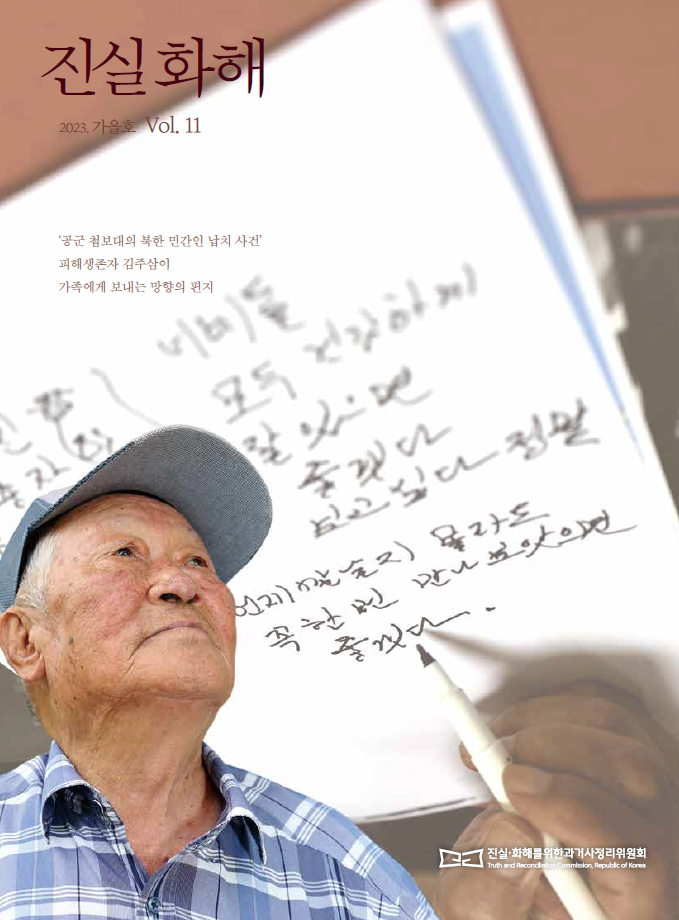 진실화해
2023. 가을호 Vol. 11
‘공군 첩보대의 북한 민간인 납치 사건’
피해생존자 김주삼이
가족에게 보내는 망향의 편지
모두 건강하게
잘 있으면
좋겠다
보고 싶다 정말
언제 몰라도
꼭 한 번 만나 보았으면
좋겠다.
진실·화해를위한과거사정리위원회
Truth and Reconciliation Commission, Republic of Korea